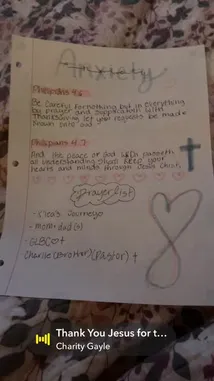 Anxiety
Philipians 4:6
Be careful for nothing but in everything
by prayer and supplication with
Thanksgiving let your requests be made
known unto God
Philipians 4:7
And the peace of God which passeth
all understanding shall keep your
hearts and minds through Jesus Christ
prayer list
Journey
- mom + dad (x)
- GLBC ♡ +
(Brother) (Pastor) +
Thank You Jesus for t...
Charity Gayle